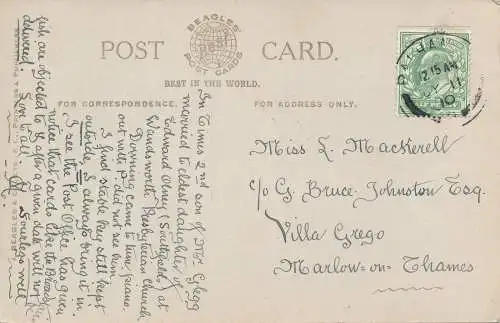 BEAGLES'
BEST
POST CARDS
POST CARD.
BEST IN THE WORLD.
FOR CORRESPONDENCE.
FOR ADDRESS ONLY.
12.15 AM
11
10
In Times 2nd son of Mr Clegg
married to eldest daughter of
Edward Olney (Southfields) at
Wandsworth Presbyterian Church
Downing came to tune piano.
out with P. did not see him
I find stable key still kept
outside, I always bring it in
I see the Post Office has given
notice that cards like the
fish are objected to & after a given date will not be
delivered. Love to all
Miss L. Mackerell
c/o G. Bruce-Johnston Esq.
Villa Grego
Marlow-on-Thames